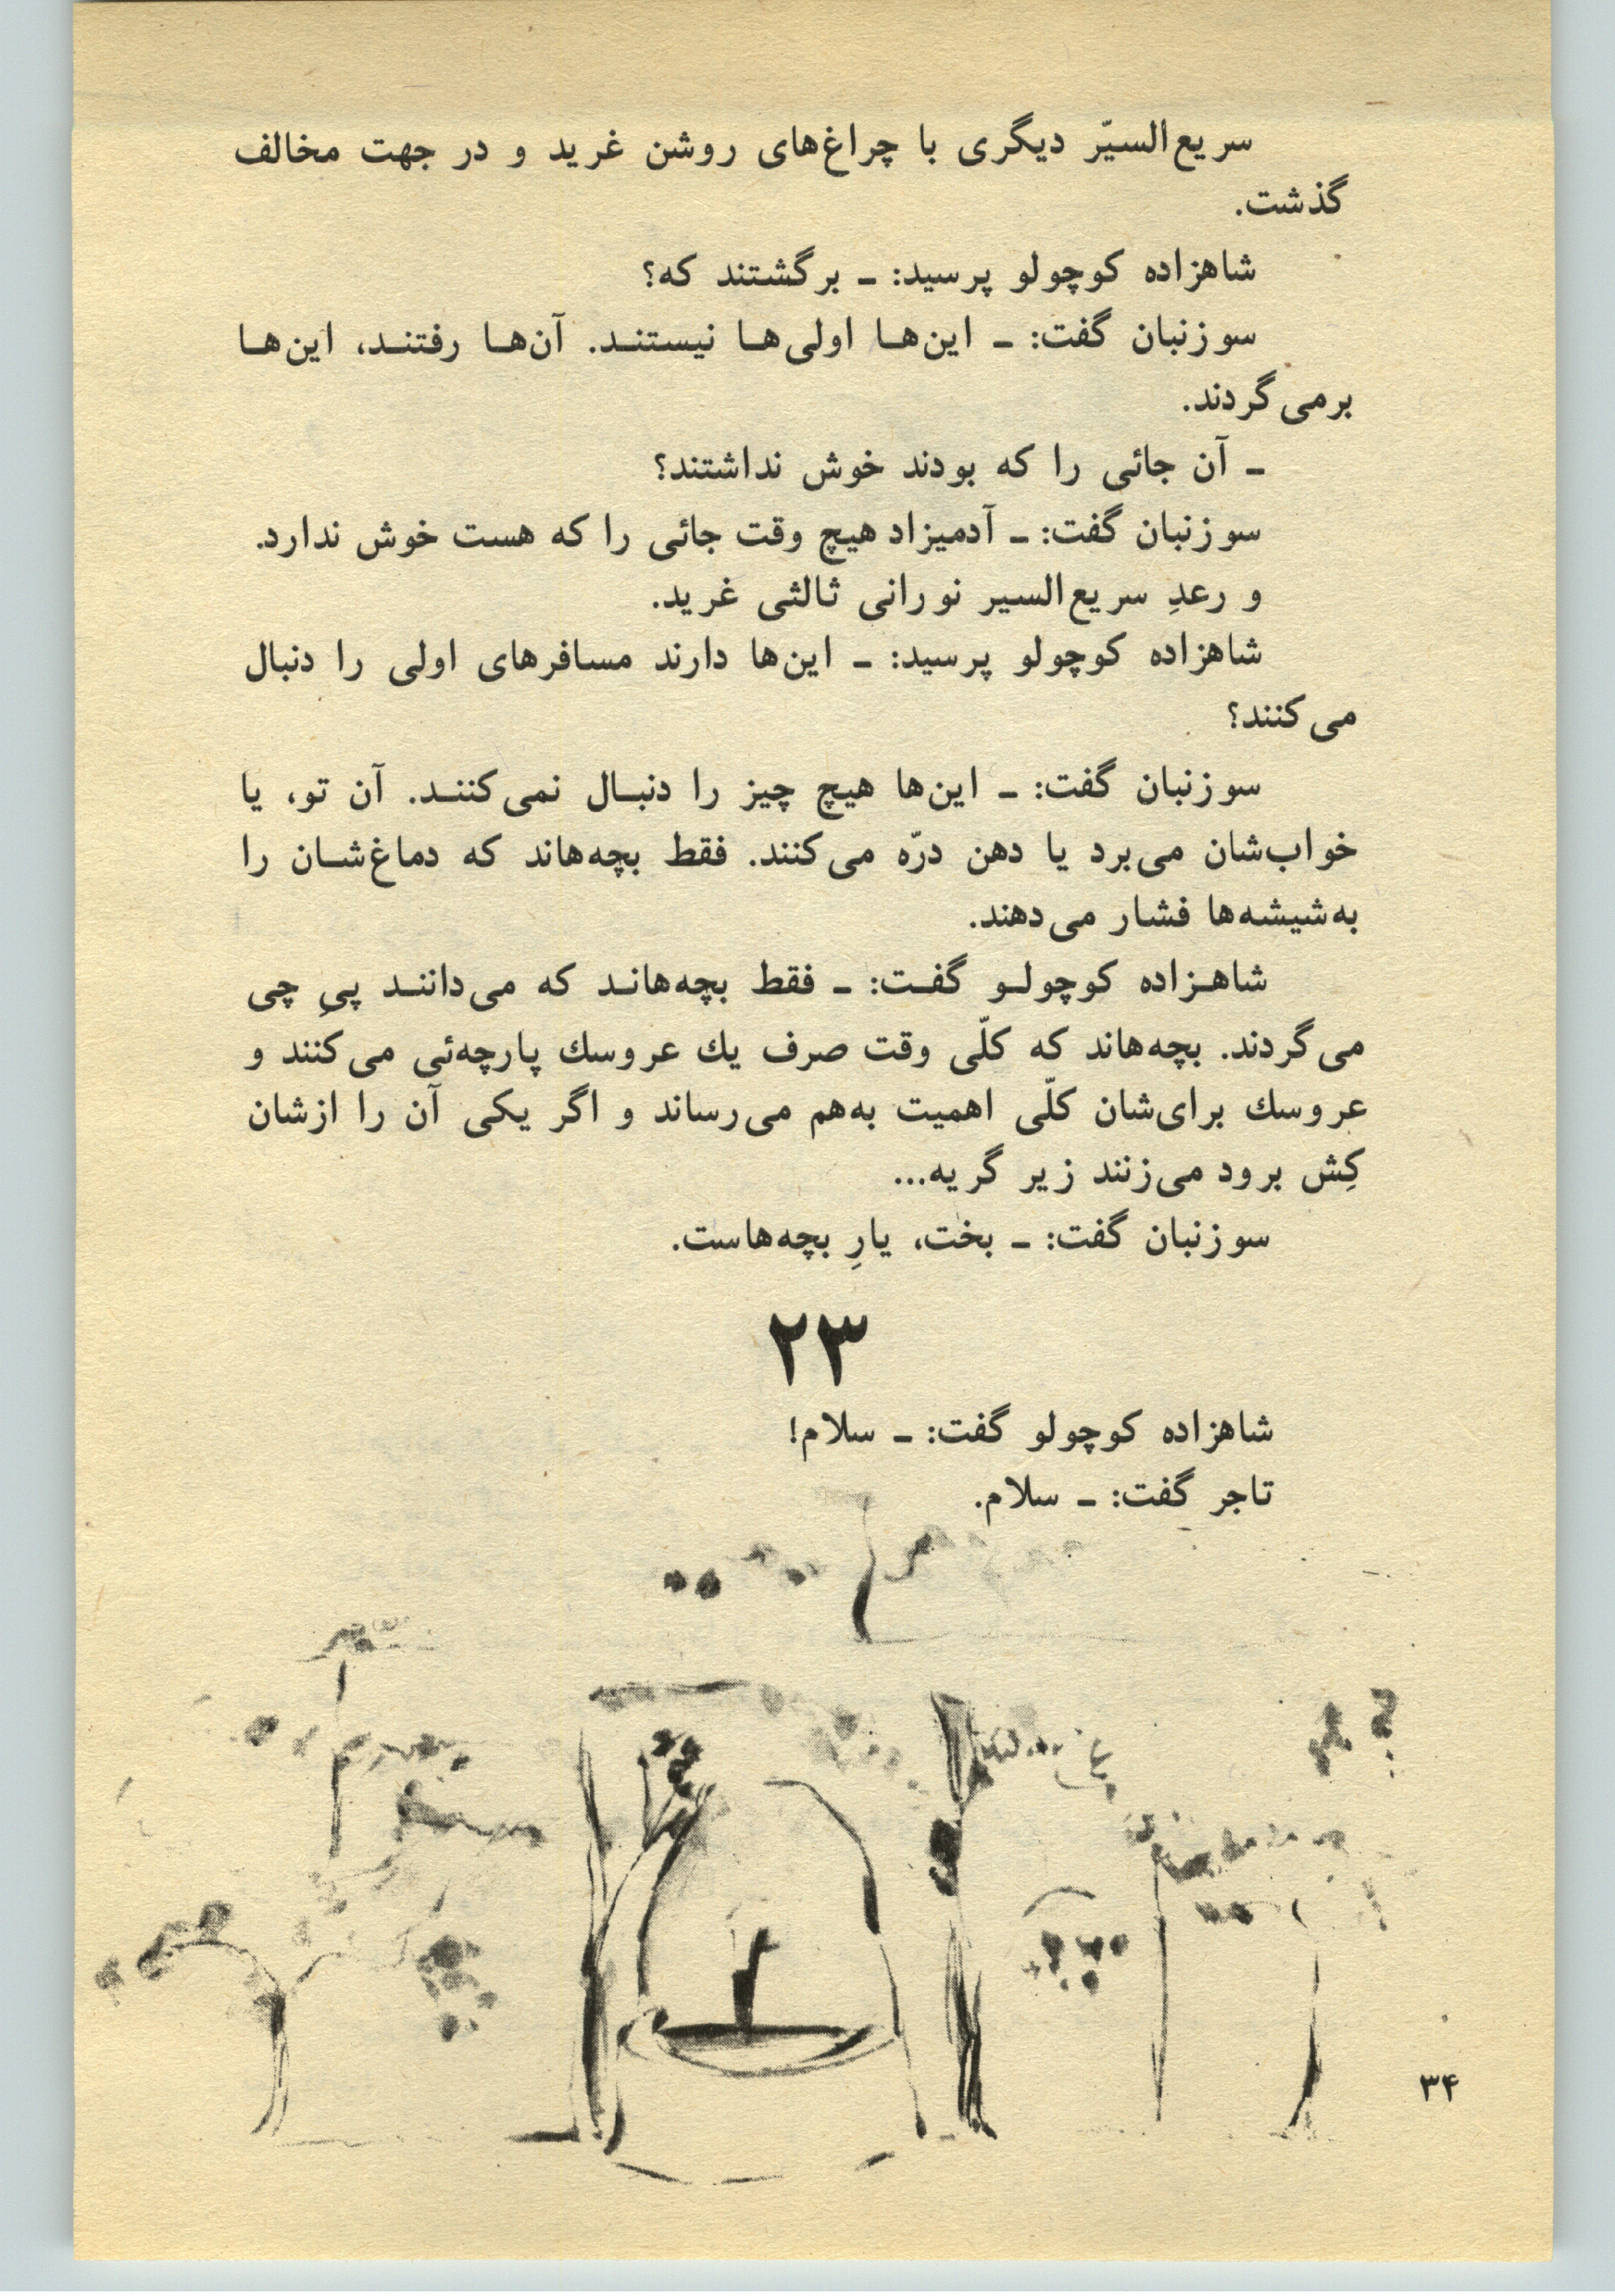 سریع‌السیّر دیگری با چراغ‌های روشن غرید و در جهت مخالف
گذشت.
شاهزاده کوچولو پرسید: ـ برگشتند که؟
سوزنبان گفت: ـ این‌ها اولی‌ها نیستند. آن‌ها رفتند، این‌ها
برمی‌گردند.
ـ آن جائی را که بودند خوش نداشتند؟
سوزنبان گفت: ـ آدمیزاد هیچ وقت جائی را که هست خوش ندارد.
و رعدِ سریع‌السیر نورانی ثالثی غرید.
شاهزاده کوچولو پرسید: ـ این‌ها دارند مسافرهای اولی را دنبال
می‌کنند؟
سوزنبان گفت: ـ این‌ها هیچ چیز را دنبال نمی‌کنند. آن تو، یا
خواب‌شان می‌برد یا دهن درّه می‌کنند. فقط بچه‌هاند که دماغ‌شان را
به‌شیشه‌ها فشار می‌دهند.
شاهزاده کوچولو گفت: ـ فقط بچه‌هاند که می‌دانند پیِ چی
می‌گردند. بچه‌هاند که کلّی وقت صرف یك عروسك پارچه‌ئی می‌کنند و
عروسك برای‌شان کلّی اهمیت به‌هم می‌رساند و اگر یکی آن را ازشان
کِش برود می‌زنند زیر گریه...
سوزنبان گفت: ـ بخت، یارِ بچه‌هاست.
۲۳
شاهزاده کوچولو گفت: ـ سلام!
تاجر گفت: ـ سلام.
۳۴